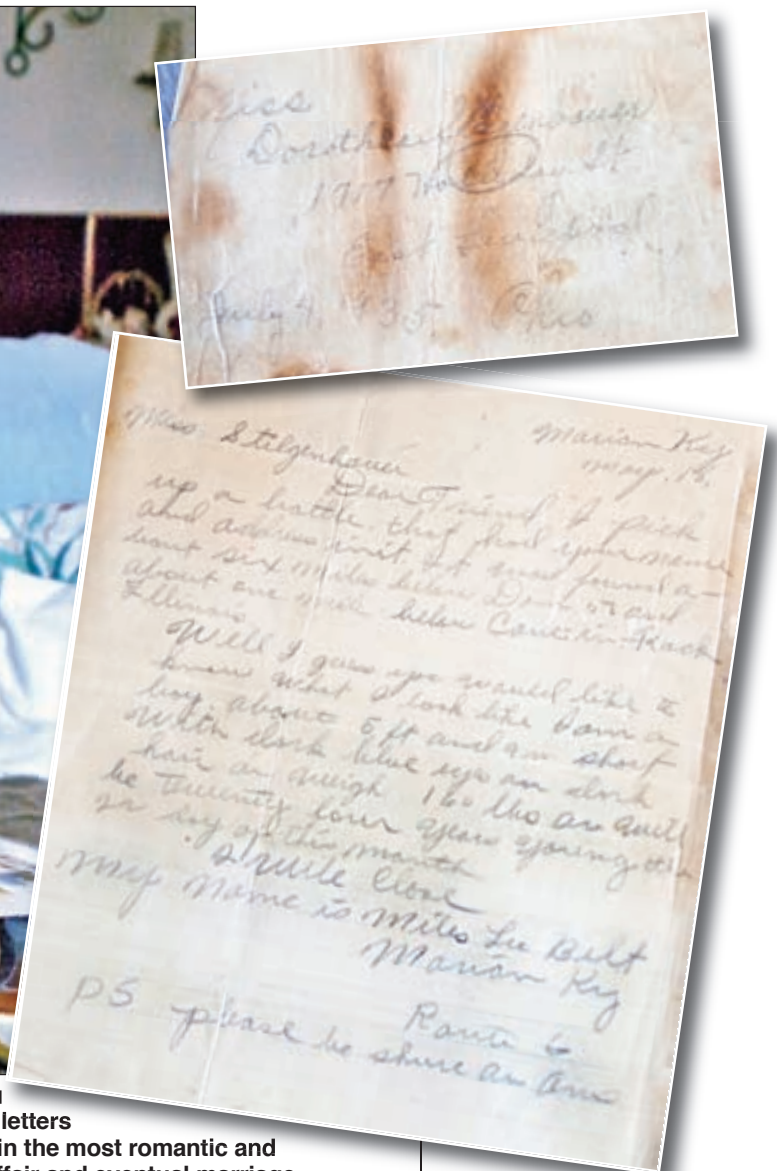 Miss
Doroth
1917
July 4, 35. Ohio
Miss. Stilgenhauer
Marian Ky
Dear Friend I pick
up a bottle that had your name
and address in it. it was found a-
bout six miles below Dam and
about one mile below Cave in Rock
Illinois.
Well I guess you would like to
know what I look like I am a
boy. about 5 ft and am short
with dark blue eys an dark
hair an weigh 160 lbs an will
be twenty four years young
day of this month
Will Close
My name is Miles Lee Belt
Marian Ky
Route 6
PS please be shure an ans
letters
in the most romantic and
ffair and eventual marriage